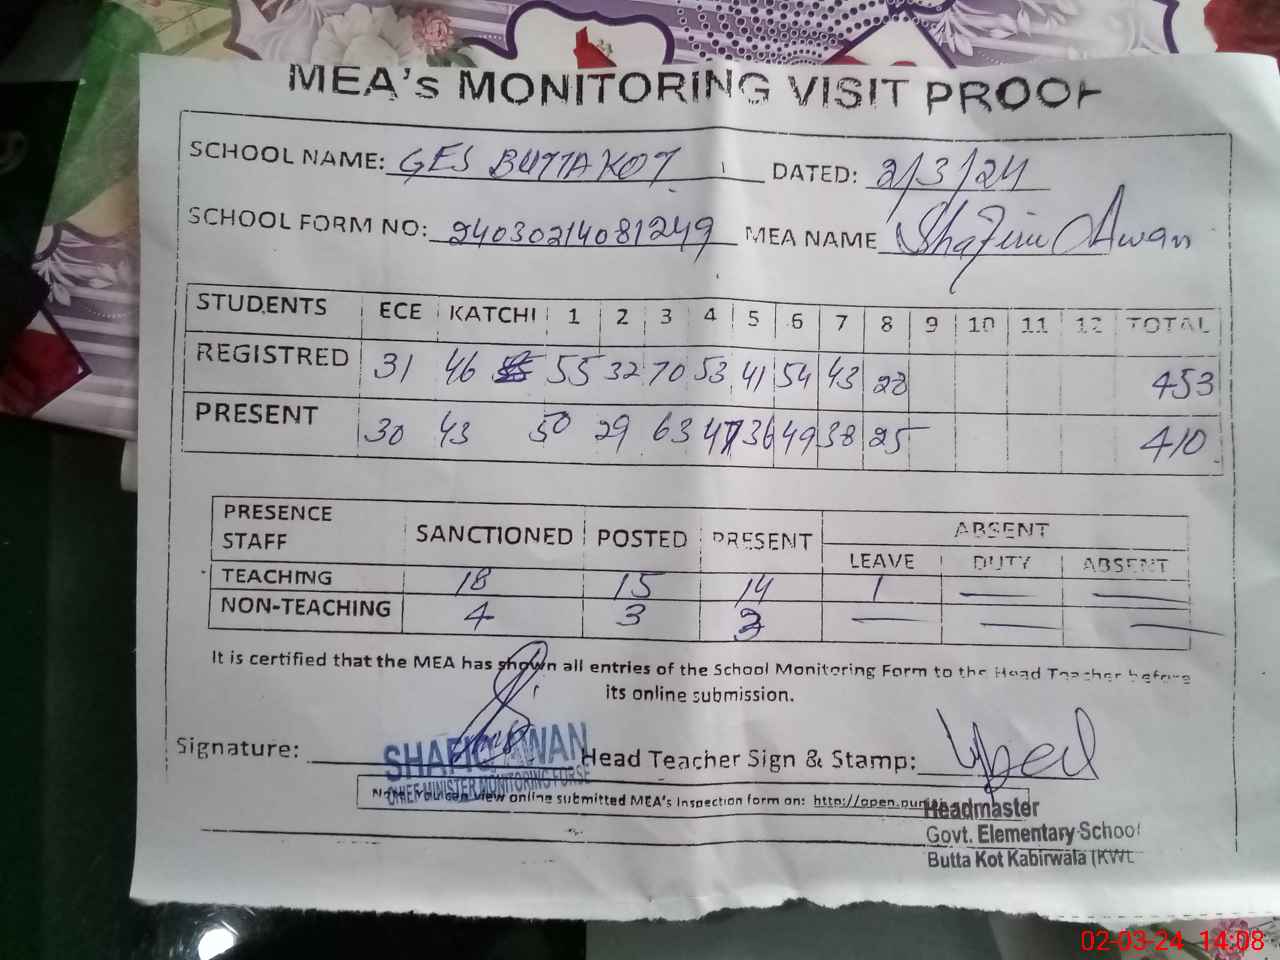 MEA's MONITORING VISIT PROOF
SCHOOL NAME: GES BUTTA KOT DATED: 2/3/24
SCHOOL FORM NO: 24030214081249 MEA NAME Shafiq Awan
STUDENTS ECE KATCHI 1 2 3 4 5 6 7 8 9 10 11 12 TOTAL
REGISTRED 31 46 55 32 70 53 41 54 43 28 453
PRESENT 30 43 50 29 63 47 36 49 38 25 410
PRESENCE STAFF SANCTIONED POSTED PRESENT ABSENT
LEAVE DUTY ABSENT
TEACHING 18 15 14 1 — —
NON-TEACHING 4 3 3 — — —
It is certified that the MEA has shown all entries of the School Monitoring Form to the Head Teacher before
its online submission.
Signature: Head Teacher Sign & Stamp:
SHAFIQ AWAN
CHIEF MINISTER MONITORING FORSE
view online submitted MEA's Inspection form on: http://open.
Headmaster
Govt. Elementary School
Butta Kot Kabirwala (KWL
02-03-24 14:08